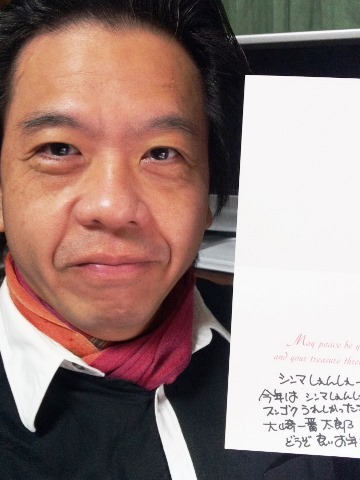 May peace be y
and your treasure thro
シンマしぇんしぇー
今年は シンマしぇんし
スンゴク うれしかったで
大崎一番太郎
どうぞ 良いお年